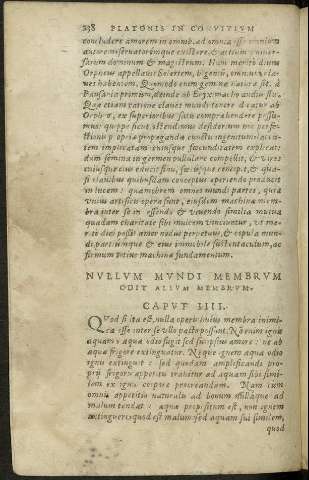 238 PLATONIS IN CONVIVIVM
concludere amorem in omnib. ad omnia esse omnium
autorem seruatoremque existere, & artium vniuer-
sarum dominum & magistrum. Hunc merito diuus
Orpheus appellauit
habentem. Quemadmodum
Pausania primum, deinde ab Eryximacho audiuistis.
Qua etiam ratione claues mundi tenere dicatur ab
Orpheo, ex superioribus satis comprehendere possu-
mus: quippe sicut ostendimus desiderium
propriae propagandae cunctis ingenitum
tem implicatam cuiusque foecunditatem explicat:
dum semina in germen pullulare compellit, & vires
cuiusque è sinu educit suo, foetusque concipit, & qua-
si clauibus quibusdam conceptus aperiendo producit
in lucem: quamobrem omnes mundi partes, quia
vnius artificis opera sunt, eiusdem machinae mem
bra inter se in essendo & viuendo similia mutua
quadam charitate sibi inuicem vinciuntur, vt me-
ritò dici possit amor nodus perpetuus, & copula mun-
di, partiumque & eius immobile sustentaculum, ac
firmum totius machinae fundamentum.
NVLLVM MVNDI MEMBRVM
ODIT ALIVM MEMBRVM.
CAPVT IIII.
QVod si ita est, nulla operis huius membra inimi-
ca esse inter se vllo pacto possunt. Non enim ignis
aquam aquae odio fugit sed suiipsius amore: ne ab
aquae frigore extinguatur. Neque ignem aqua odio
ignis extinguit: sed quodam amplificandi pro-
prij frigoris appetitu trahitur ad aquam sibi simi-
lem ex ignis corpore procreandam. Nam cum
omnis appetitio naturalis ad bonum nullaque ad
malum tendat: aquae propositum est, non ignem
extinguere, quod est malum sed aquam sui similem,
quod